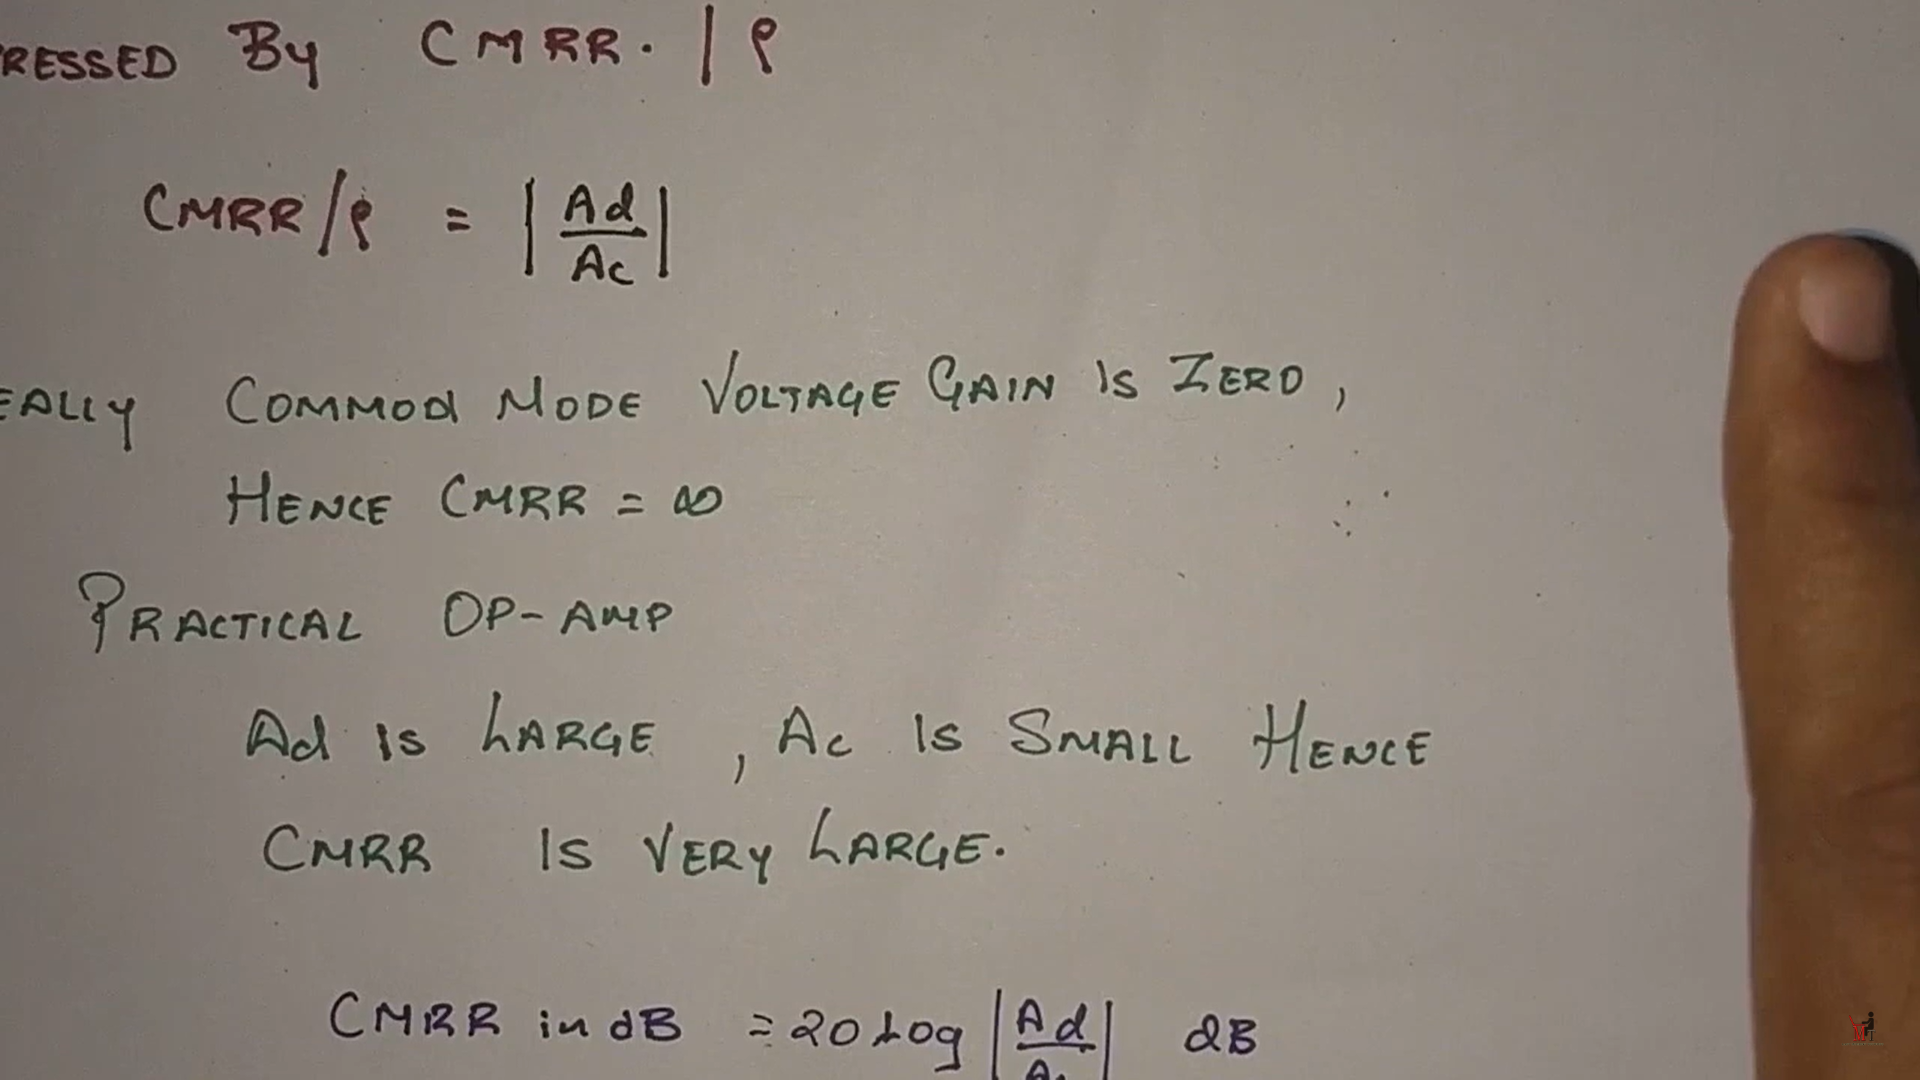 RESSED By CMRR. / ρ
CMRR/ρ = |Ad/Ac|
EALLY COMMON MODE VOLTAGE GAIN IS ZERO,
HENCE CMRR = ∞
PRACTICAL OP-AMP
Ad IS LARGE, Ac IS SMALL HENCE
CMRR IS VERY LARGE.
CMRR in dB = 20 Log |Ad/A| dB